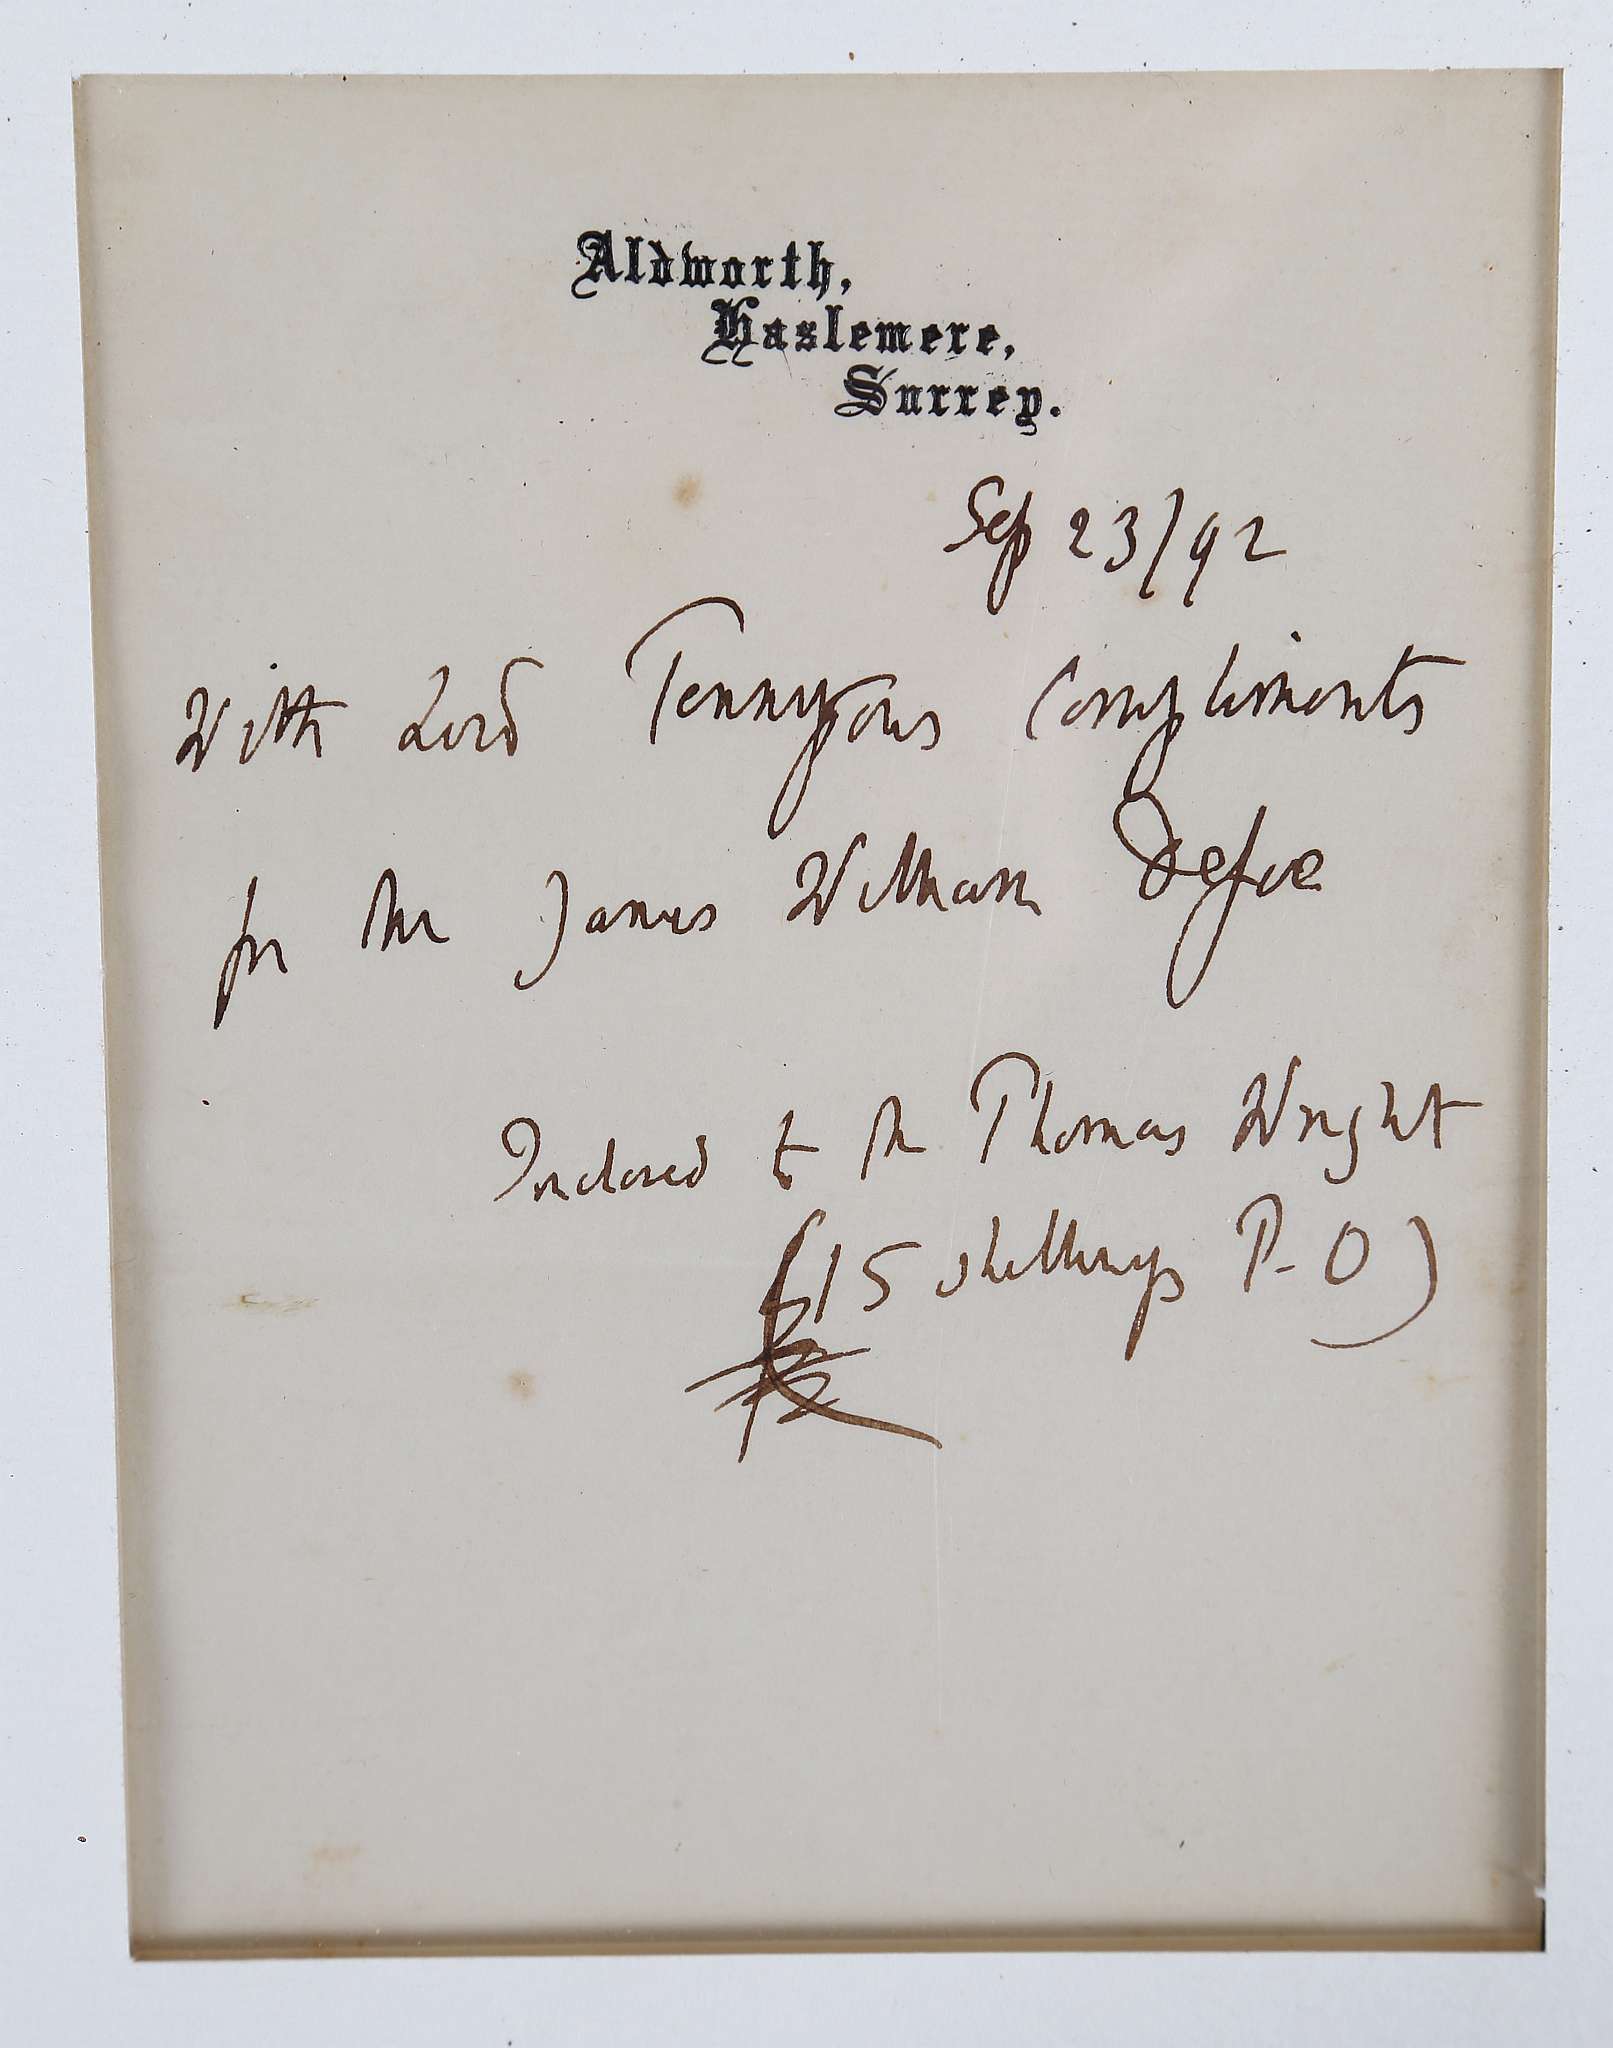 Aldworth,
Haslemere,
Surrey.
Sep 23/92
With Lord Tennysons compliments
for Mr James William Defoe
Inclosed to Mr Thomas Wright
(15 shillings P-O)